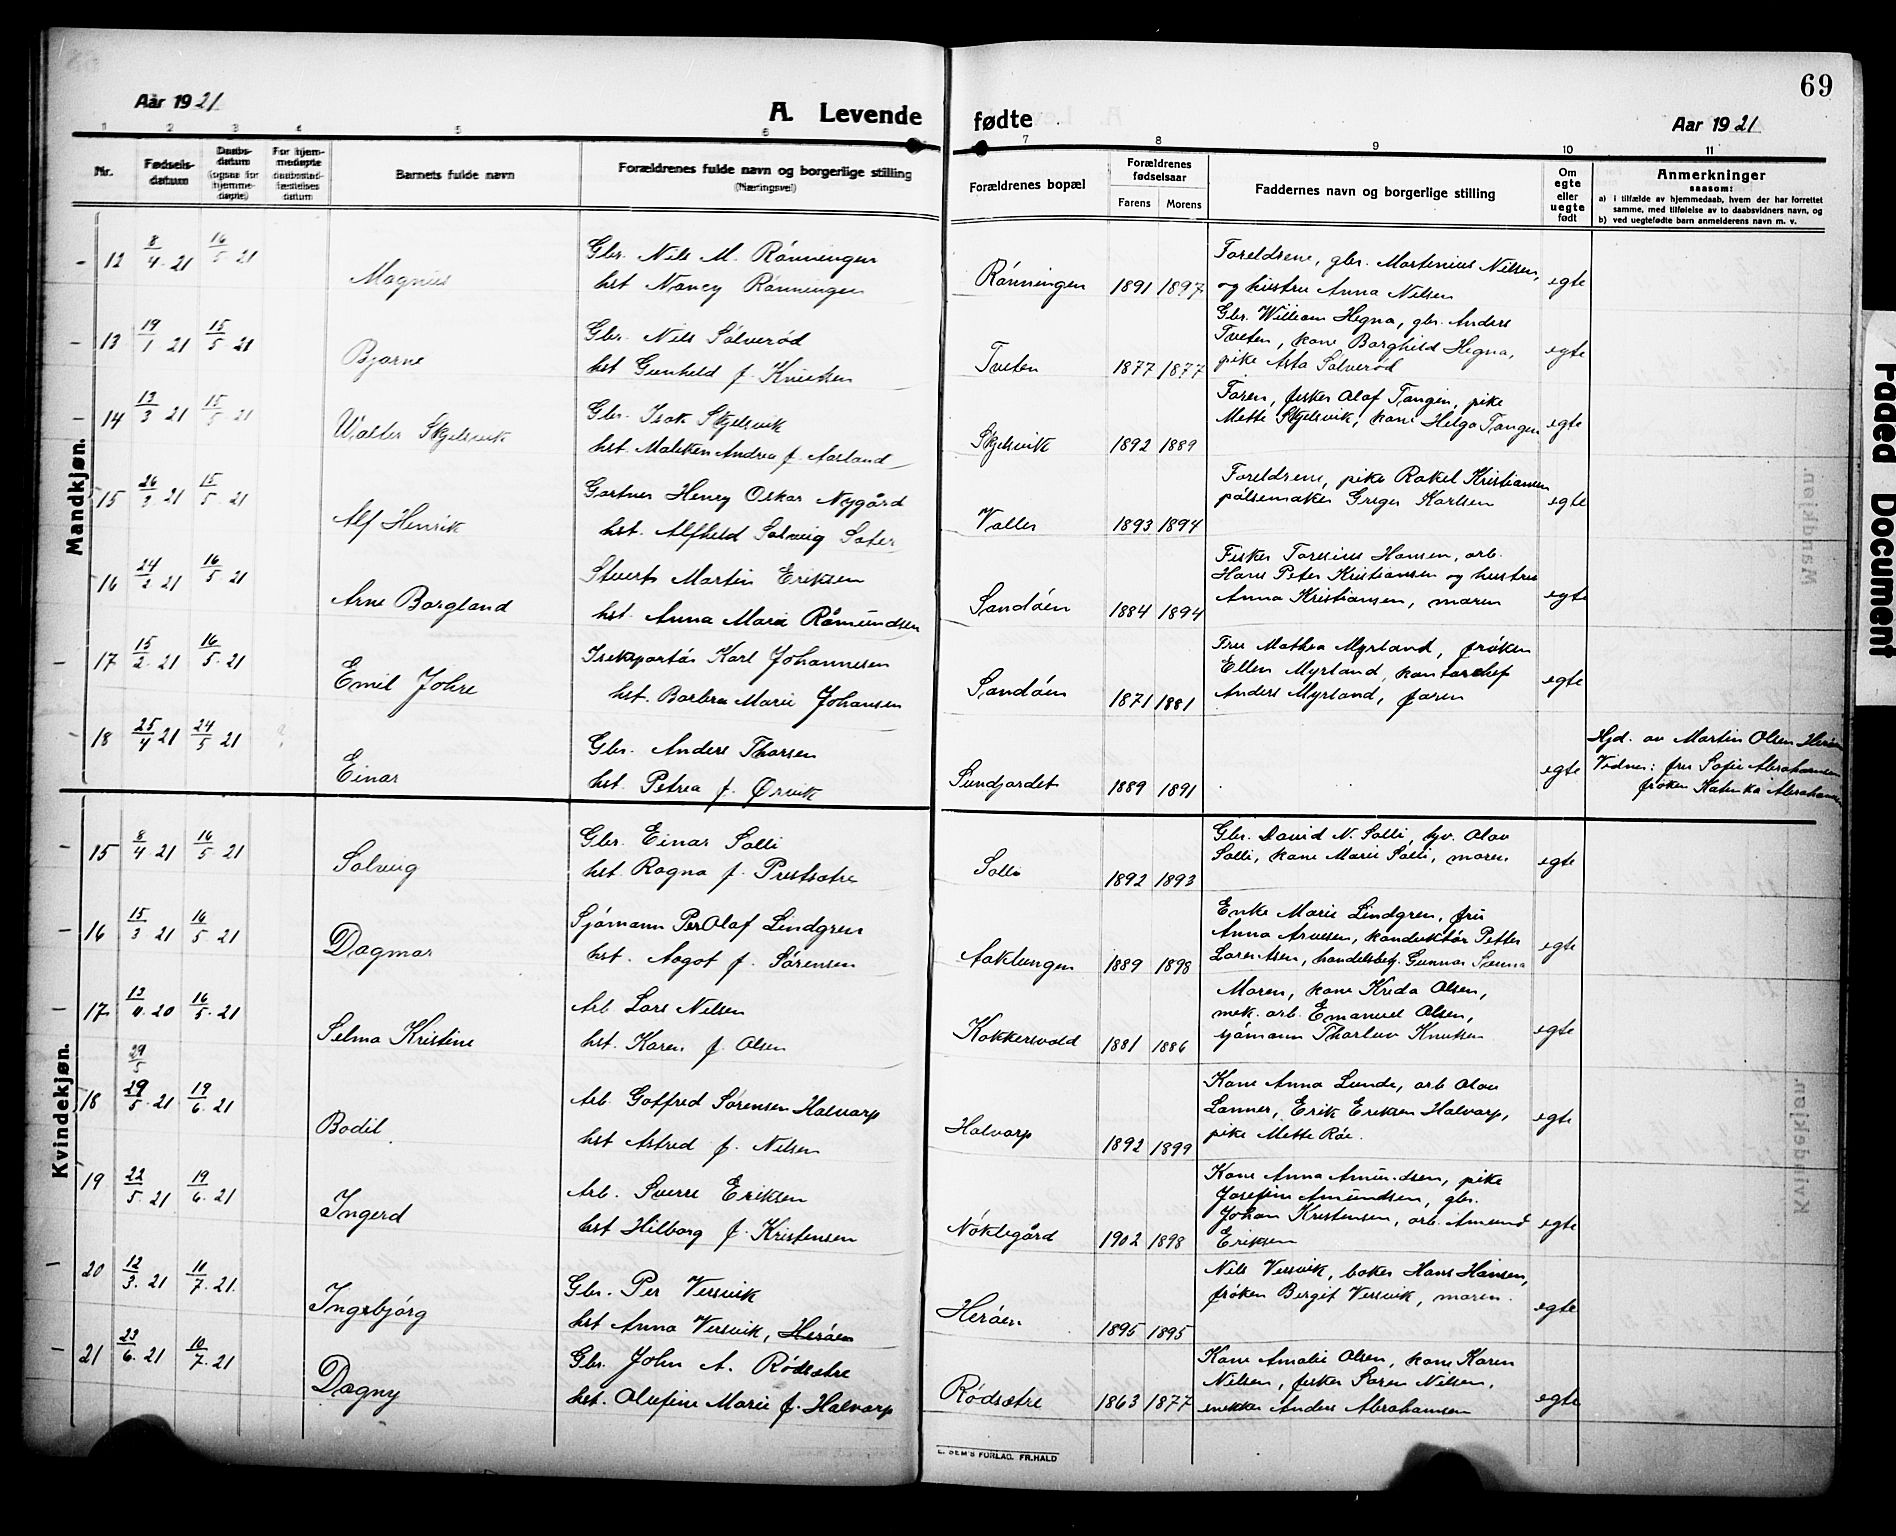 69
Aar 1921
A. Levende
fødte
Aar 1921
1 2 3 4 5 6 7 8 9 10 11
Nr.
Fødsels-
datum
Daabs-
datum
(ogsaa for
hjemme-
døpte)
For hjem-
medøpte
daabsstad-
fæstelses
datum
Barnets fulde navn
Forældrenes fulde navn og borgerlige stilling
(Næringsvei)
Forældrenes bopæl
Forældrenes
fødselsaar
Farens Morens
Faddernes navn og borgerlige stilling
Om
egte
eller
uegte
født
Anmerkninger
saasom:
a) i tilfælde av hjemmedaab, hvem der har forrettet
samme, med tilføielse av to daabsvidners navn, og
b) ved uegtefødte barn anmelderens navn m. v.
Mandkjøn.
12 8/4 21 16/5 21 Magnus
Gbr. Nils M. Rønningen
hst Nancy Rønningen
Rønningen 1891 1897
Foreldrene, gbr. Martinius Nilsen,
og hustru Anna Nilsen
egte
13 19/1 21 15/5 21 Bjarne
Gbr. Nils Solverød
hst Gunhild f. Knudsen
Tveten 1877 1877
Gbr. William Hegna, gbr. Anders
Tveten, kone Borghild Hegna,
pike Asta Solverød
egte
14 13/3 21 15/5 21 Walter Skjelsvik
Gbr. Isak Skjelsvik
hst. Maleken Andrea f. Aarland
Skjelsvik 1892 1889
Faren, fisker Olaf Tangen, pike
Mette Skjelsvik, kone Helga Tangen
egte
15 26/3 21 15/5 21 Alf Henrik
Gartner Henry Oskar Nygård
hst. Alfhild Solveig Sater
Valler 1893 1894
Foreldrene, pike Rakel Kristiansen
pølsemaker Greger Karlsen
egte
16 24/2 21 16/5 21 Arne Borgland
Stuert Martin Eriksen
hst. Anna Marie Råmundsen
Sandøen 1884 1894
Fisker Toresius Hansen, arb.
Hans Peter Kristiansen og hustru
Anna Kristiansen, moren
egte
17 15/2 21 16/5 21 Emil Johre
Karl Johannesen
hst. Barbra Marie Johansen
Sandøen 1871 1881
Fru Mathea Myrland, frøken
Ellen Myrland, kontorchef
Anders Myrland, faren
egte
18 25/4 21 24/5 21 Einar
Gbr. Anders Thorsen
hst. Petrea f. Ørvik
Sundjordet 1889 1891
egte
Hjd. av Martin Olsen Herøen
Vidner: fru Sofie Abrahamsen
frøken Katinka Abrahamsen
Kvindekjøn.
15 8/4 21 16/5 21 Solveig
Gbr. Einar Solli
hst. Ragna f. Prestsætre
Solli 1892 1893
Gbr. David N. Solli, tjv. Olav
Solli, kone Marie Solli, moren
egte
16 15/3 21 16/5 21 Dagmar
Sjømann Per Olaf Lindgren
hst. Aagot f. Sørensen
Aaklungen 1889 1898
Enke Marie Lindgren, fru
Anna Arvesen, konduktør Petter
Larentsen, handelsbetj. Gunnar Sanna
egte
17 13/4 20 16/5 21 Selma Kristine
Arb Lars Nilsen
hst. Karen f. Olsen
Kokkersvold 1881 1886
Moren, kone Kreda Olsen,
mek. arb. Emanuel Olsen,
sjømann Thorleiv Knutsen
egte
29/5
18 29/5 21 19/6 21 Bodil
Arb. Gotfred Sørensen Halvarp
hst Astrid f. Nilsen
Halvarp 1892 1899
Kone Anna Lunde, arb Olav
Lanner, Erik Eriksen Halvarp,
pike Mette Røe.
egte
19 22/5 21 19/6 21 Ingerd
Arb. Sverre Eriksen
hst Hilborg f. Kristensen
Nøklegård 1902 1898
Kone Anna Amundsen, pike
Josefine Amundsen, gbr.
Johan Kristensen, arb. Amund
Eriksen
egte
20 12/3 21 10/7 21 Ingebjørg
Gbr. Per Versvik
hst Anna Versvik, Herøen
Herøen 1895 1895
Nils Versvik, baker Hans Hansen,
frøken Bergit Versvik, moren.
egte
21 23/6 21 10/7 21 Dagny
Gbr. John A. Rødsætre
hst. Olufine Marie f. Halvarp
Rødsætre 1863 1877
Kone Amalie Olsen, kone Karen
Nilsen, fisker Søren Nilsen,
snekker Anders Abrahamsen
egte
E. SEM'S FORLAG. FR.HALD
Faded Document